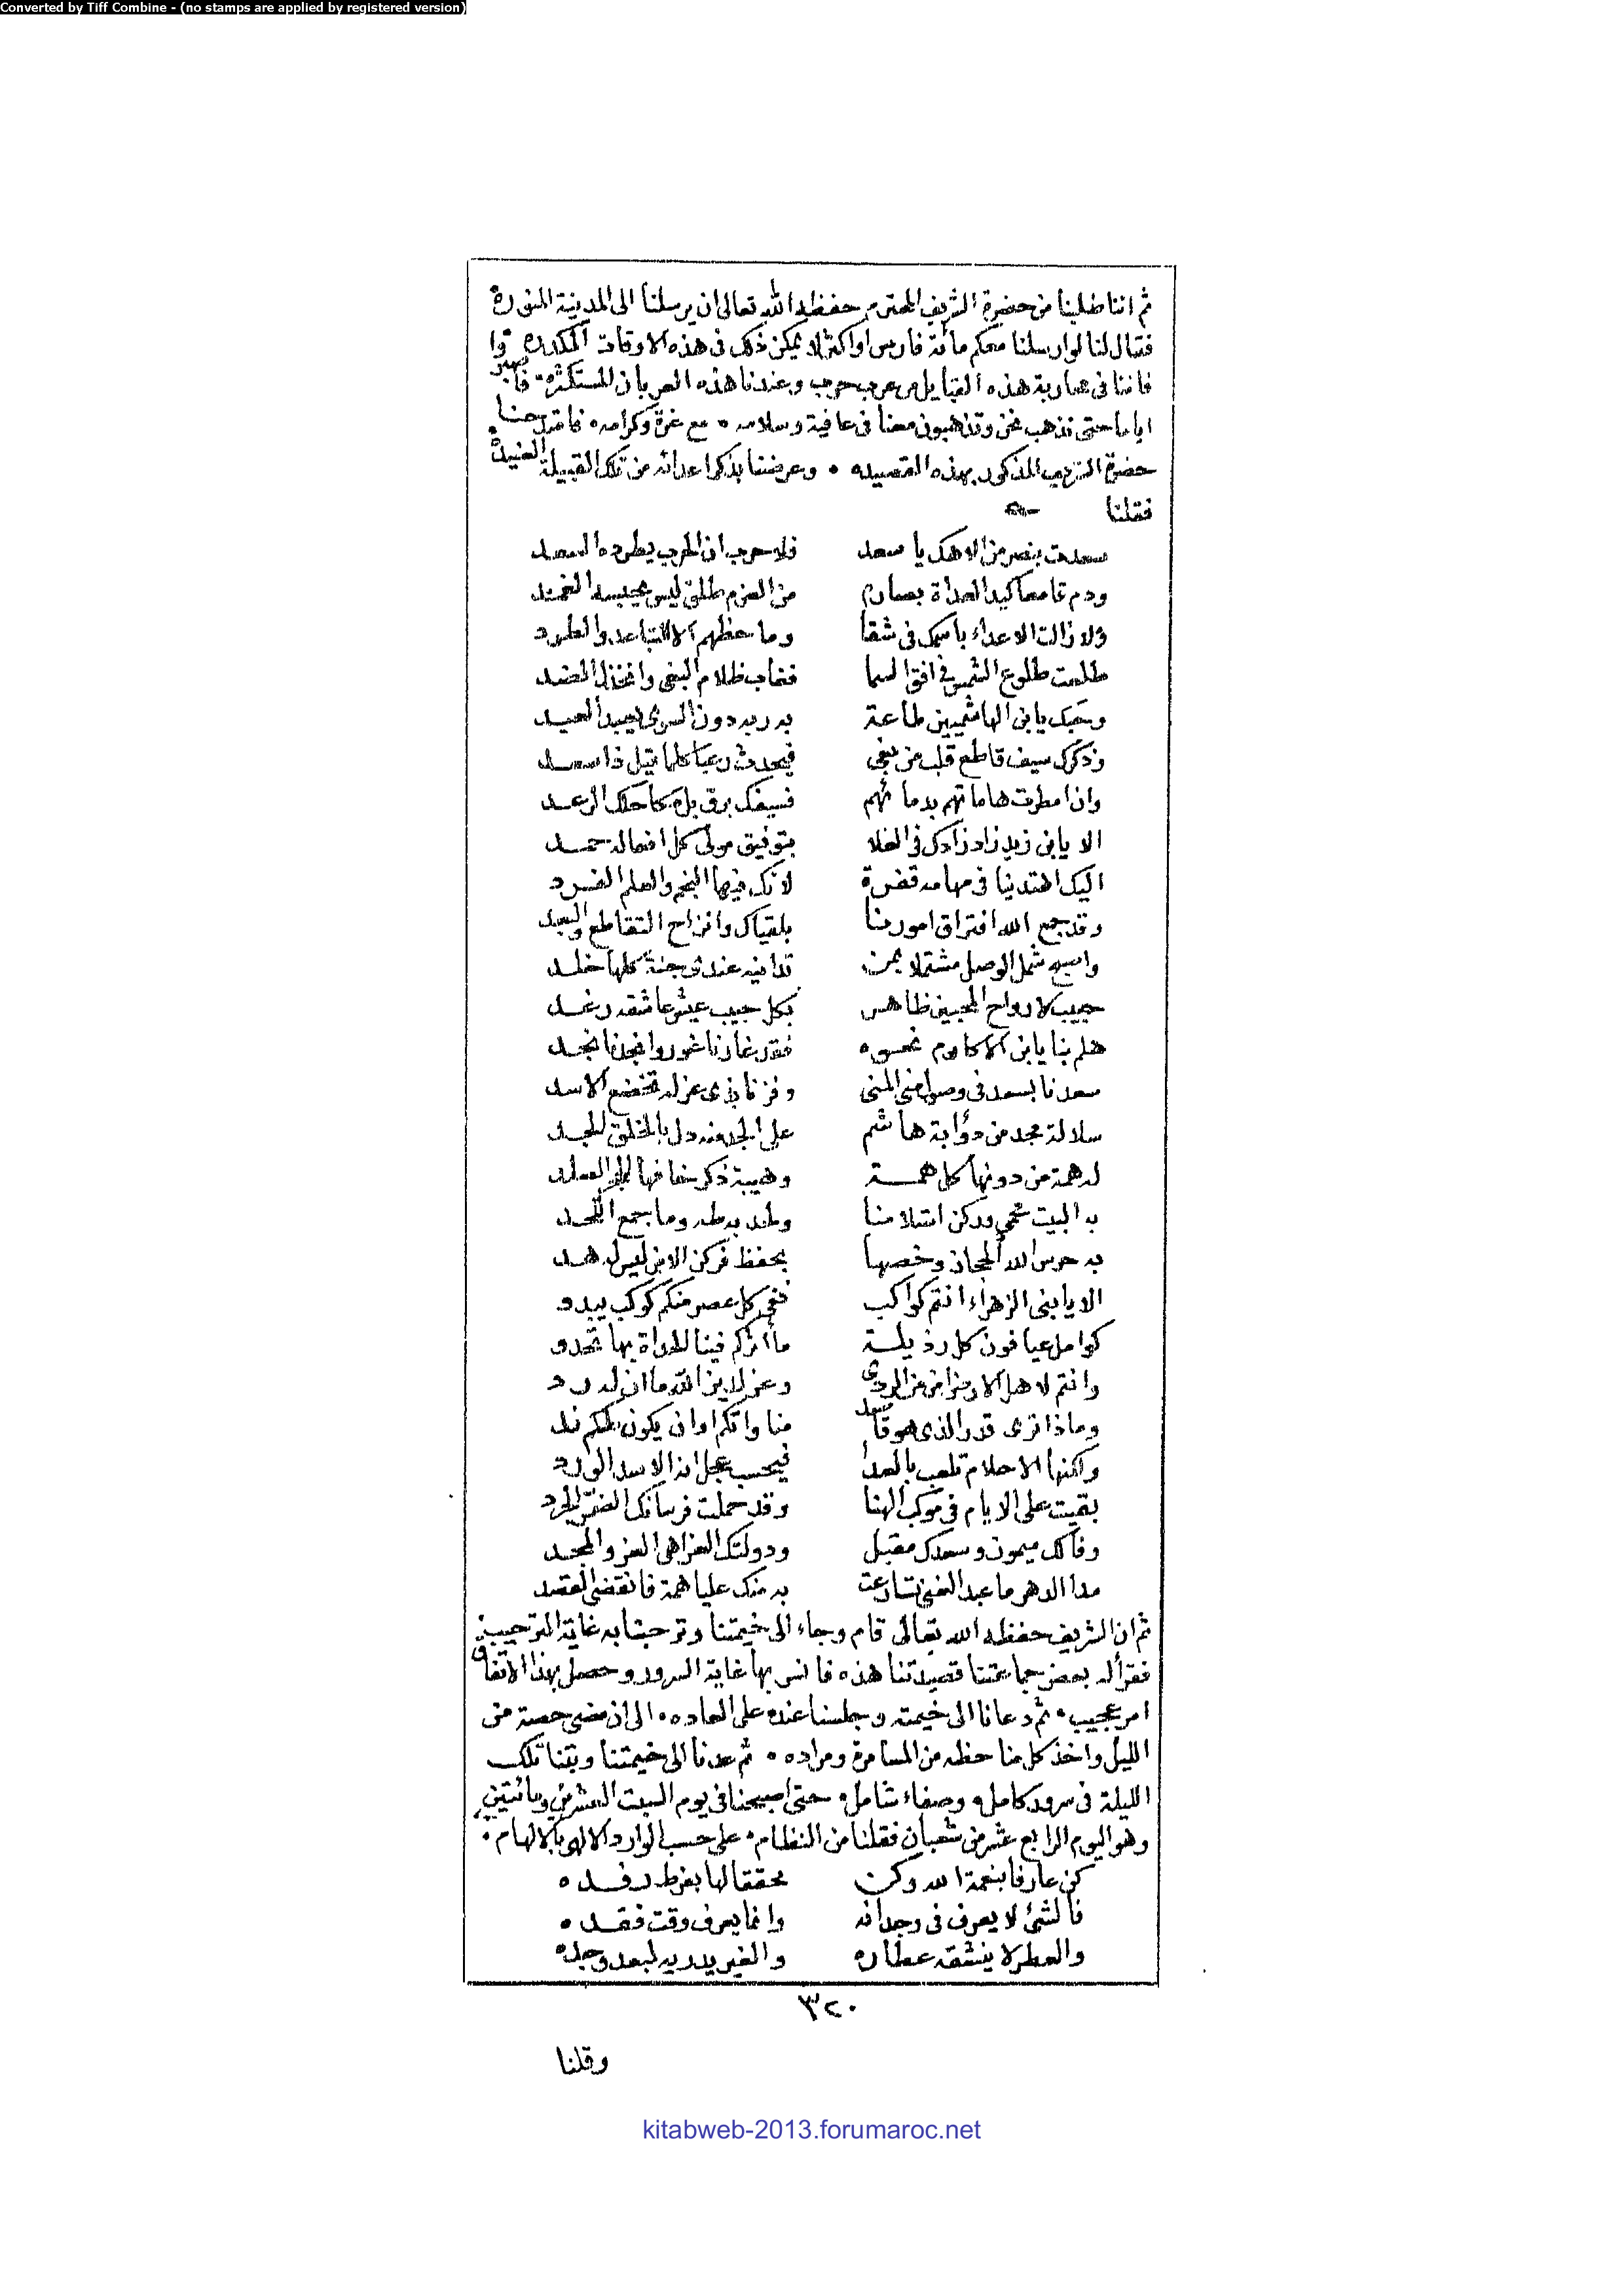 Converted by Tiff Combine - (no stamps are applied by registered version)
ثم اننا طلبنا من حضرة الشريف المحترم حفظه الله تعالى ان يرسلنا الى المدينة المنورة
فقال لنا لو ارسلنا معكم مائة فارس او اكثر لا يمكن ذلك فى هذه الاوقات المكدره
فاننا فى محاربة هذه القبايل من عرب حرب وعندنا هذه العربان المستكثرة فاصبر
اياما حتى نذهب نحن وتذهبون معنا فى عافية وسلامه مع عزة وكرامه فامتدحنا
حضرة الشريف المذكور بهذه القصيده وعرضنا بذكر اعدائه من تلك القبيلة العنيدة
فقلنا
سعدت بنصر من الاهك يا سعد فلا حرب ان الحرب يطرده السعد
ودم قامعا كيد العداة بصارم من العزم طلق ليس يحبسه الغمد
ولا زالت الاعداء باسمك فى شقا وما حظهم الا التباعد والطرد
طلعت طلوع الشمس فى افق السما فغاب ظلام البغى وانخذل الضد
وحبك يا بن الهاشميين طاعة به ربه دون السوى يعبد العبد
وذكرك سيف قاطع قلب من بغى فيحدث رعبا كلما قيل ذا سعد
وان امطرت هاماتهم بدمائهم فسيفك برق بل كما حلك الرعد
الا يا بن زيد زاد زادك فى العلا بتوفيق مولى كل افعاله حمد
اليك اهتدينا فى مهامه قفرة لانك فيها النجم والعلم الفرد
وقد جمع الله افتراق امورنا بلقياك وانزاح التقاطع والبعد
واصبح شمل الوصل مشتملا بمن تدانيه عندى جنة كلها خلد
حبيب لارواح المحبين ظاهر بكل حبيب عيش عاشقه رغد
هلم بنا يا بن الاكارم نحوه فقد غارنا غور وانجدنا نجد
سعدنا بسعد فى وصول منى المنى وفزنا بذى عز له تخضع الاسد
سلالة مجد من ذؤابة هاشم على الجد منه دل بالخلق المجد
له همة من دونها كل همة وهيبة ذكر خافها الحجر الصلد
به البيت محمى وركن استلامنا وطه به طه وما جمع اللحد
به حرس الله الحجاز وخصها بحفظ فركن الامن ليس له هد
الا يا بنى الزهراء انتم كواكب ففى كل عصر منكم كوكب يبدو
كوامل عيافون كل رذيلة مآثركم فينا الحداة بها تحدو
وانتم لاهل الارض امن من الردى وعز لدين الله ما ان له رد
وماذا ترى قدر الذى هو قاصد مناواتكم او ان يكون لكم ند
ولكنها الاحلام تلعب بالعدا فيحسب عجل انه الاسد الورد
بقيت على الايام فى موكب الهنا وقد حملت فرسانك الضمر الجرد
وفالك ميمون وسعدك مقبل ودولتك الغرا هى العز والمجد
مدا الدهر ما عبد الغنى تسارعت به منك عليا همة فانقضى القصد
ثم ان الشريف حفظه الله تعالى قام وجاء الى خيمتنا وترحبنا به غاية الترحيب
فقرأ له بعض جماعتنا قصيدتنا هذه فانسر بها غاية السرور وحصل بهذا الاتفاق
امر عجيب ثم دعانا الى خيمته وجلسنا عنده على العاده الى ان مضى حصة من
الليل واخذ كل منا حظه من المسامرة ومراده ثم عدنا الى خيمتنا وبتنا تلك
الليلة فى سرور كامل وصفاء شامل حتى اصبحنا فى يوم السبت العشرين ومائتين
وهو اليوم الرابع عشر من شعبان فقلنا من النظام على حسب الوارد الالهى بالالهام
كن عارفا بنعمة الله وكن محققا لها بفرط رفده
فالشئ لا يعرف فى وجدانه وانما يعرف وقت فقده
والعطر لا ينشقه عطاره والغير يدريه لبعد وجده
٣٢٠
وقلنا
kitabweb-2013.forumaroc.net